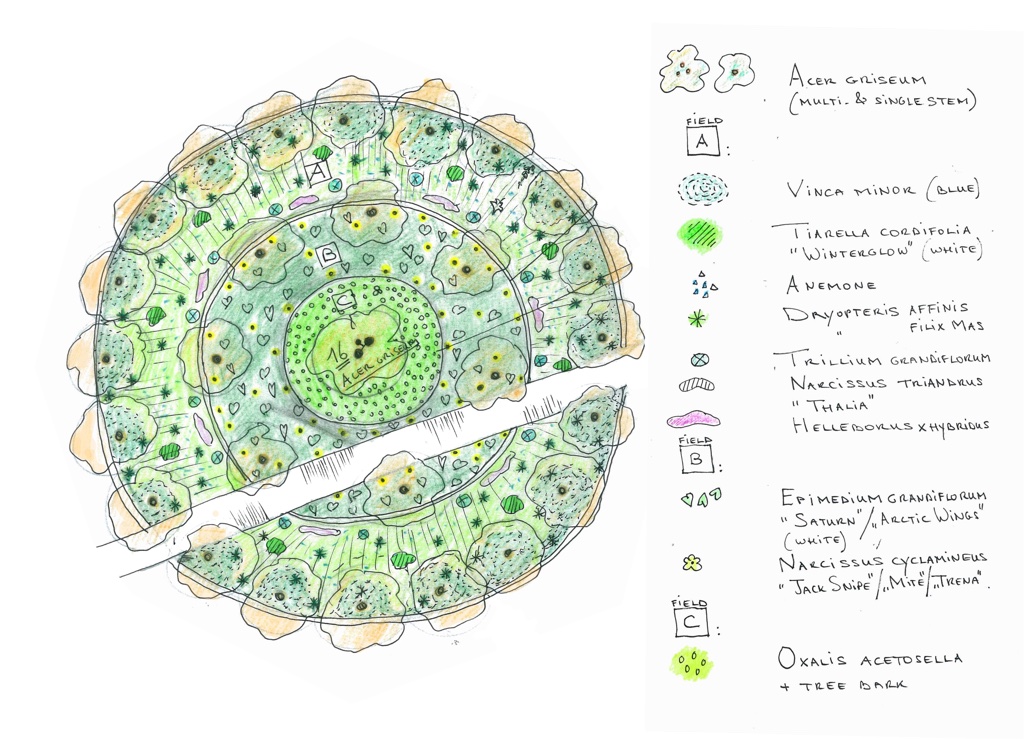 A
B
C
16
ACER GRISEUM
ACER GRISEUM
(MULTI- & SINGLE STEM)
FIELD
A :
VINCA MINOR (BLUE)
TIARELLA CORDIFOLIA
"WINTERGLOW" (WHITE)
ANEMONE
DRYOPTERIS AFFINIS
" FILIX MAS
TRILLIUM GRANDIFLORUM
NARCISSUS TRIANDRUS
"THALIA"
HELLEBORUS X HYBRIDUS
FIELD
B :
EPIMEDIUM GRANDIFLORUM
"SATURN"/"ARCTIC WINGS"
(WHITE)
NARCISSUS CYCLAMINEUS
"JACK SNIPE"/"MITE"/"TRENA".
FIELD
C :
OXALIS ACETOSELLA
+ TREE BARK